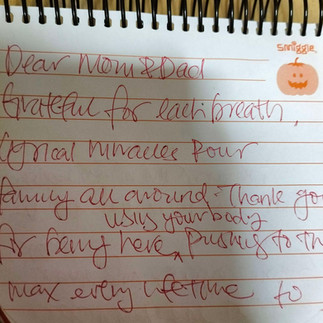 smiggle
Dear Mom & Dad
Grateful for each breath,
Lyrical miracles Pour
family all around. Thank you
using your body
for being here, Pushing to the
max every lifetime to